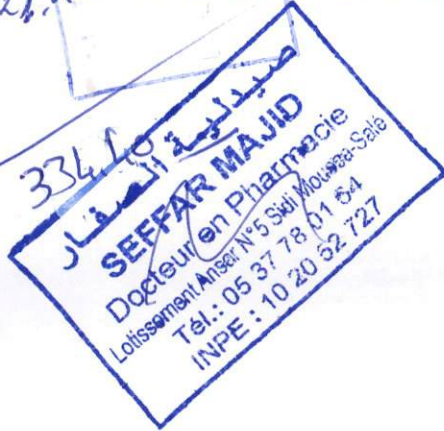 334,40
صيدلية الصفار
SEFFAR MAJID
Docteur en Pharmacie
Lotissement Ansar N°5 Sidi Moussa-Salé
Tél.: 05 37 78 01 64
INPE : 10 20 52 727